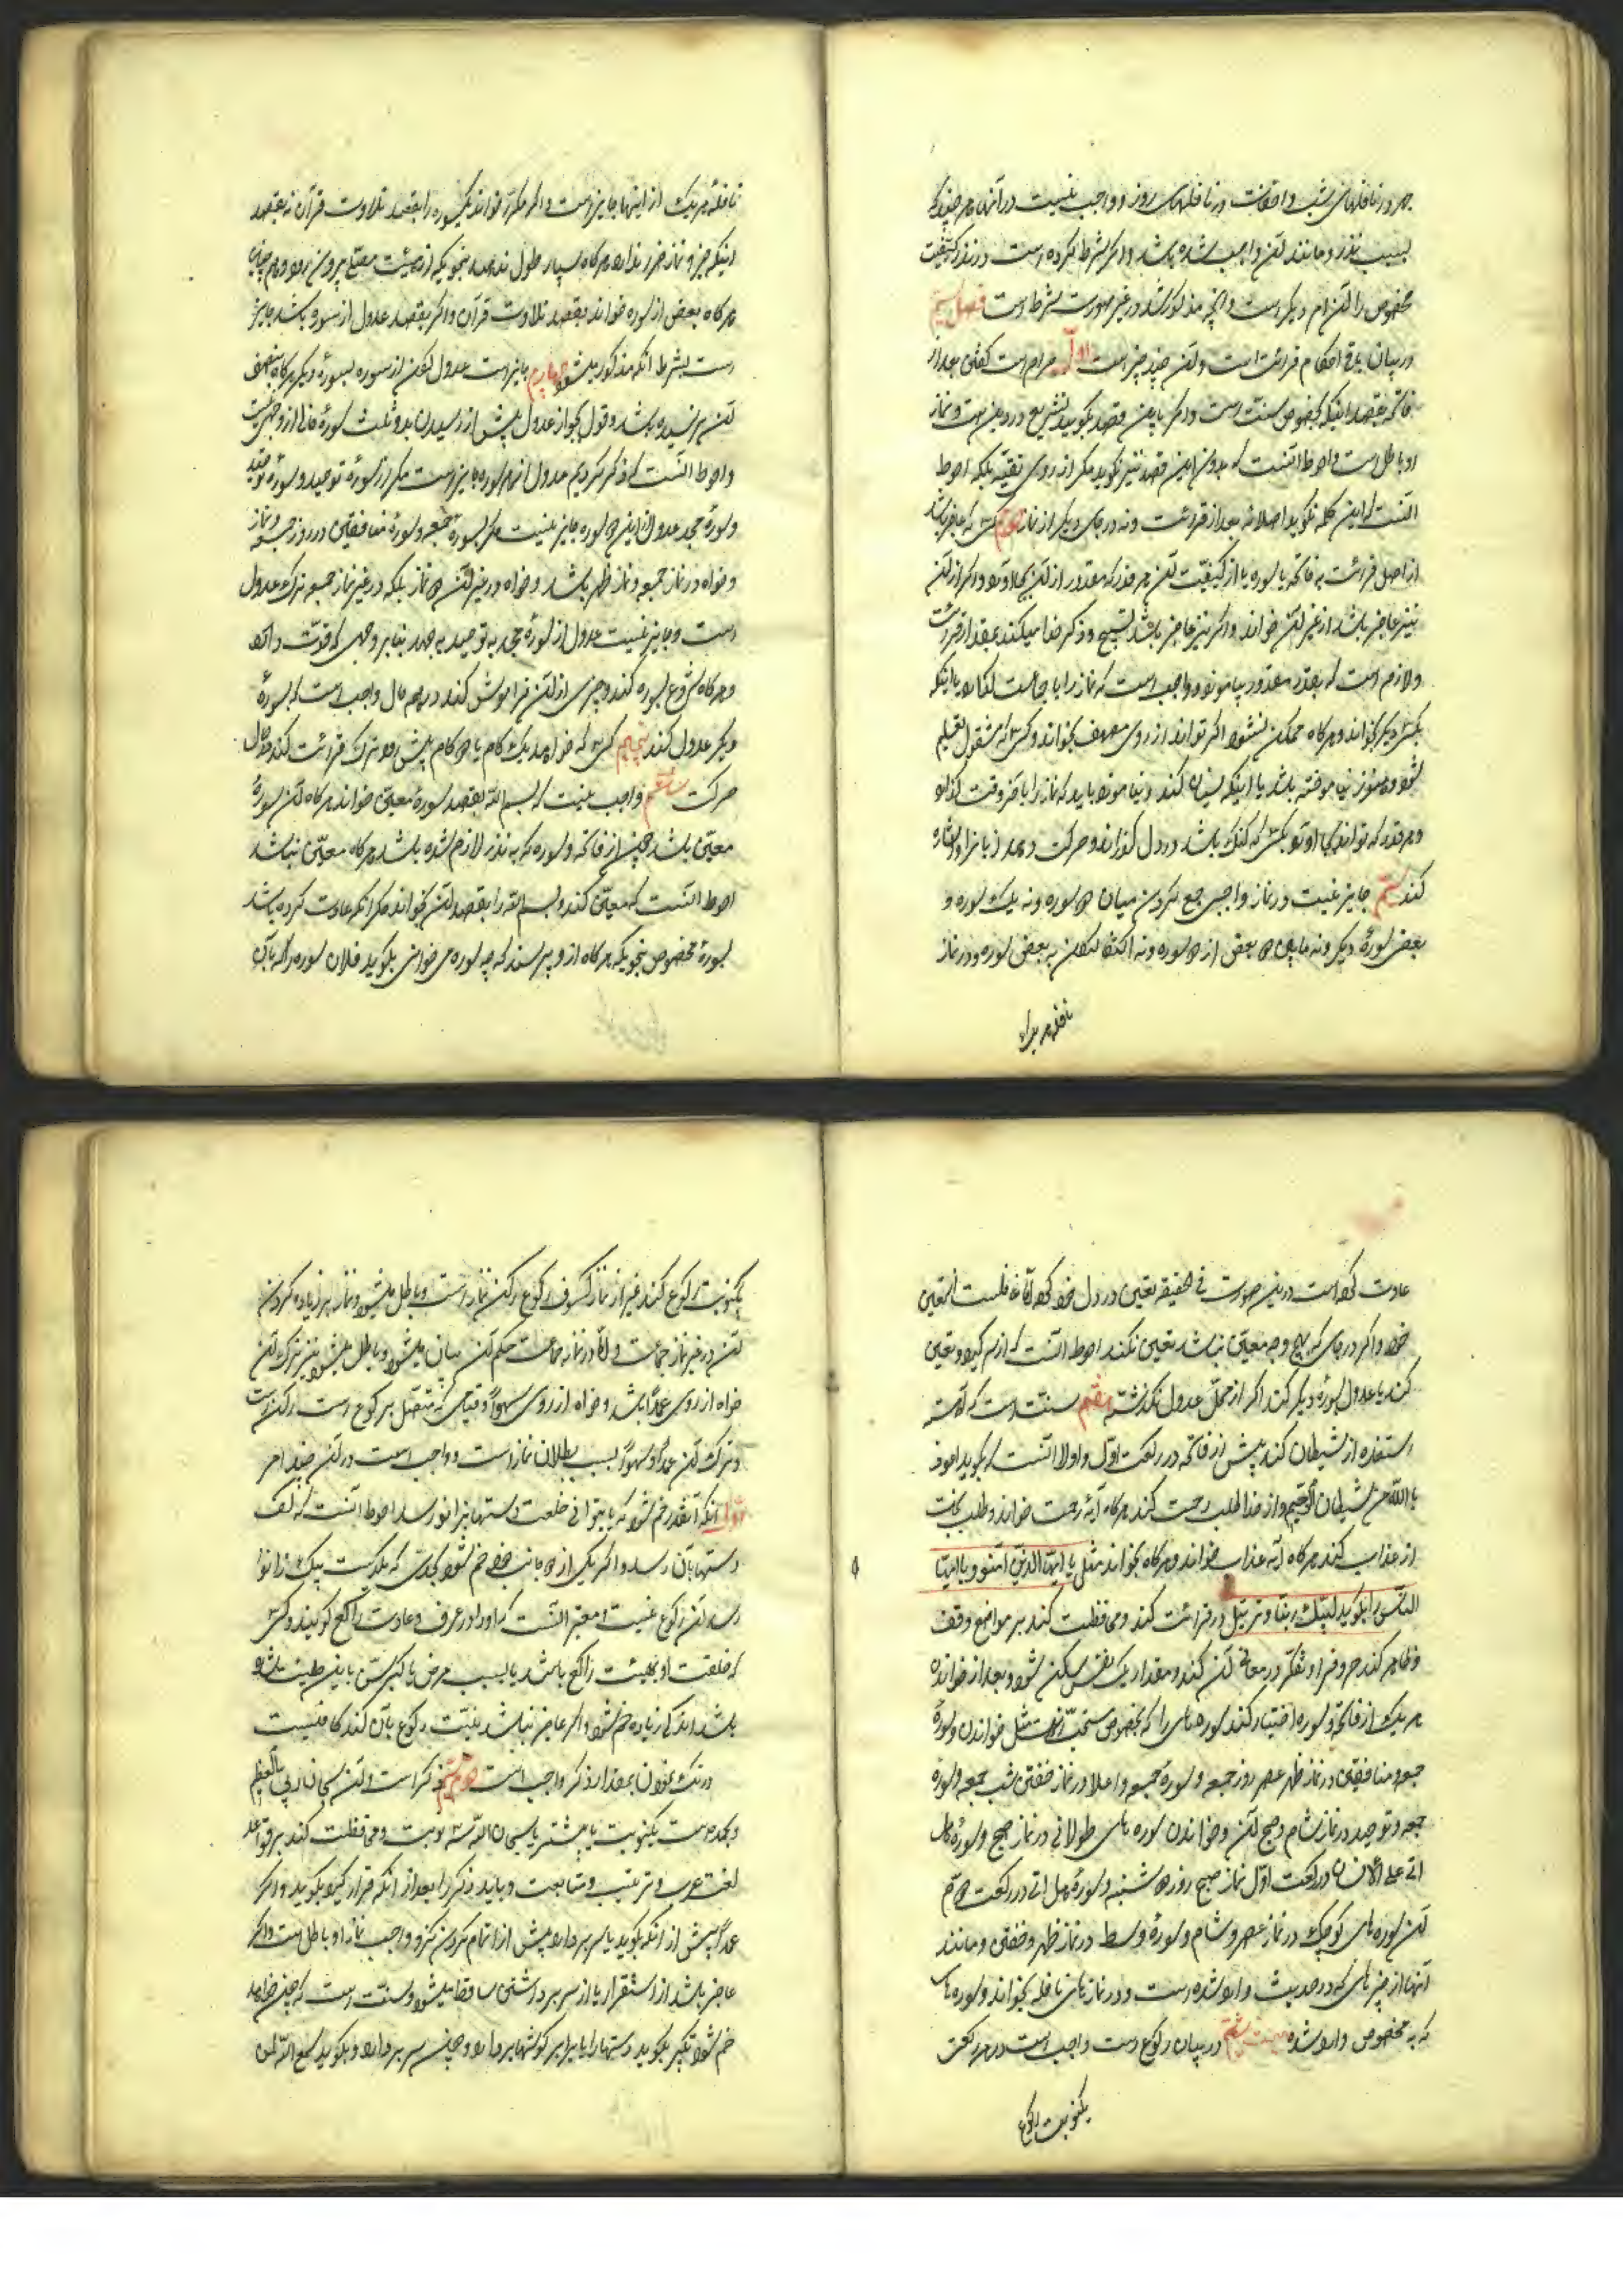 جهر در نافلهای شب و اخفات در نافلهای روز و واجب نیست در آنها هر چند که
بسبب نذر و مانند آن واجب شده باشد و اگر شرط کرده است در نذر کیفیت
مخصوص را آن امر دیگر است و آنچه مذکور شد در غیر صورت شرط است فصل
در بیان باقی احکام قرائت است و آن چند چیز است اول حرام است گفتن بعد از
فاتحه بقصد اینکه بخصوص سنت است و اگر باین قصد بگوید تشریع در دین است و نماز
او باطل است و احوط آنست که بدون این قصد نیز نگوید مگر از روی تقیه بلکه احوط
آنست که این کلمه نگوید اصلا نه بعد از قرائت و نه در جای دیگر از نماز دوم کسی که عاجز باشد
از اصل قرائت به فاتحه یا سوره یا از کیفیت آن هر قدر که مقدور از آن بجا آورد و اگر از آن
نیز عاجز باشد از غیر آن خواند و اگر نیز عاجز باشد تسبیح و ذکر خدا میکند بمقدار قرائت
و لازم است که بقدر مقدور بیاموزد و واجب است که نماز را با جماعت بکند یا اینکه
بکسی دیگر بخواند و هر گاه ممکن نشود اگر تواند از روی مصحف بخواند و کسی که مشغول تعلیم
شود و هنوز نیاموخته باشد یا اینکه نسیان کند و نیاموزد باید که نماز را باخر وقت گذارد
و هر قدر که تواند بجا آورد و کسی که گنگ باشد در دل گذراند و حرکت دهد زبانرا و اشاره
کند سیم جایز نیست در نماز واجبی جمع کردن میان دو سوره و نه یک سوره و
بعض سورهٔ دیگر و نه میان دو بعض از دو سوره و نه اکتفا کردن به بعض سوره و در نماز
نافله هر یک
نافله هر یک از اینها جایز است و اگر مکرر خواند یکسوره را بقصد تلاوت قرآن نه بقصد
اینکه جزو نماز ضرر ندارد هر گاه بسیار طول ندهد بنحویکه از هیئت مصلی بیرون رود و هم چنین
هر گاه بعض از سوره خواند بقصد تلاوت قرآن و اگر بقصد عدول از سوره باشد جایز
است بشرط آنکه مذکور میشود چهارم جایز است عدول کردن از سوره بسورهٔ دیگر هر گاه بنصف
آن نرسیده باشد و قول بجواز عدول پیش از رسیدن بدو ثلث سوره خالی از وجهی نیست
و احوط آنست که ذکر کردیم عدول از هر سوره جایز است مگر از سورهٔ توحید و سورهٔ
و سورهٔ جحد عدول از این دو سوره جایز نیست مگر بسورهٔ جمعه و سورهٔ منافقین در روز جمعه و نماز
و خواه در نماز جمعه و نماز ظهر باشد و خواه در غیر آن دو نماز بلکه در غیر نماز جمعه ترک عدول
است و جایز نیست عدول از سورهٔ جحد به توحید به جحد بنا بر وجهی که قوت دارد
و هر گاه شروع بسوره کند و چیزی از آن فراموش کند در هر حال واجب است که بسورهٔ
دیگر عدول کند پنجم کسی که خواهد یک گام یا دو گام پیش رود ترک قرائت کند در حال
حرکت ششم واجب نیست که بسم الله بقصد سورهٔ معین خواند هر گاه آن سورهٔ
معین باشد چنین از فاتحه و سوره که به نذر لازم شده باشد هر گاه معین نباشد
احوط آنست که معین کند و بسم الله را بقصد آن بخواند مگر آنکه عادت کرده باشد
بسورهٔ مخصوص بنحویکه هر گاه از و پرسند که چه سوره می خوانی بگوید فلان سوره را که بآن
عادت کرده است درین صورت فی الحقیقه تعیین در دل خود کرده اما غافلست از تعیین
خود و اگر در جای که بهیچ وجه معین نباشد تعیین نکند احوط آنست که از سر گیرد و تعیین
کند یا عدول بسورهٔ دیگر کند اگر از محل عدول نگذشته هفتم سنت است که آهسته
استعاذه از شیطان کند پیش از فاتحه در رکعت اول و اولا آنست که بگوید اعوذ
بالله من الشیطان الرجیم و از خدا طلب رحمت کند هر گاه آیهٔ رحمت خواند و طلب نجات
از عذاب کند هر گاه آیه عذاب خواند و هر گاه بخواند مثل یا ایها الذین آمنو و یا ایها
الناس را بگوید لبیک ربنا و ترتیل در قرائت کند و محافظت کند بر مواضع وقف
و ظاهر کند حروف را و تفکر در معانی آن کند و مقدار یک نفس ساکن شود و بعد از خواندن
هر یک از فاتحه و سوره اختیار کند سوره های را که بخصوص مستحب است مثل خواندن سورهٔ
جمعه و منافقین در نماز ظهر عصر روز جمعه و سورهٔ جمعه و اعلا در نماز خفتن شب جمعه و سورهٔ
جمعه و توحید در نماز شام و صبح آن و خواندن سوره های طولانی در نماز صبح و سورهٔ هل
اتی علی الانسان در رکعت اول نماز صبح روز دو شنبه و سورهٔ هل اتی در رکعت دوم
آن سوره های کوچک در نماز عصر و شام و سورهٔ وسط در نماز ظهر و خفتن و مانند
آنها از چیزهای که در حدیث وارد شده است و در نمازهای نافله بخواند سوره های
که به مخصوص وارد شده در بیان رکوع است واجب است در هر رکعت
یکنوبت رکوع
یکنوبت رکوع کند غیر از نماز کسوف رکوع رکن نماز است و باطل میشود نماز بر زیاده کردن
آن در غیر نماز جماعت و اما در نماز جماعت حکم آن بیان میشود و باطل میشود نیز بترک آن
خواه از روی عمد باشد و خواه از روی سهو و قیامی که متصل برکوع است رکن است
و ترک آن عمدا و سهوا سبب بطلان نماز است و واجب است در آن چند امر
اول آنکه آنقدر خم شود که با استوای خلقت دستها بزانو رسد احوط آنست که کف
دستها بآن رسد و اگر بیکی از دو جانب خود خم شود بحدی که یک دست بیک زانو
رسد آن رکوع نیست و معتبر آنست که او را در عرف و عادت راکع گویند و کسی
که خلقت او بهیئت راکع باشد یا بسبب مرض یا کبر سن باین طینت شده
باشد اندکی زیاده خم شود و اگر عاجز نباشد بنیت رکوع بآن کند کافیست
درنگ نمودن بمقدار ذکر واجب است ذکر است و آن سبحان ربی العظیم
و بحمده است یکنوبت یا بیشتر یا سبحان الله سه نوبت و محافظت کند بر قواعد
لغت عرب و ترتیب و متابعت و باید ذکر را بعد از آنکه قرار گیرد بگوید و اگر
عمدا پیش از آنکه بگوید یا سر بردارد پیش از اتمام کردن ذکر واجب نماز او باطل است و اگر
عاجز باشد از استقرار یا از سر برداشتن ساقط میشود و سنت است که چون خواهد
خم شود تکبیر بگوید و دستها را با برابر گوشها بردارد و چون سر بردارد بگوید سمع الله لمن